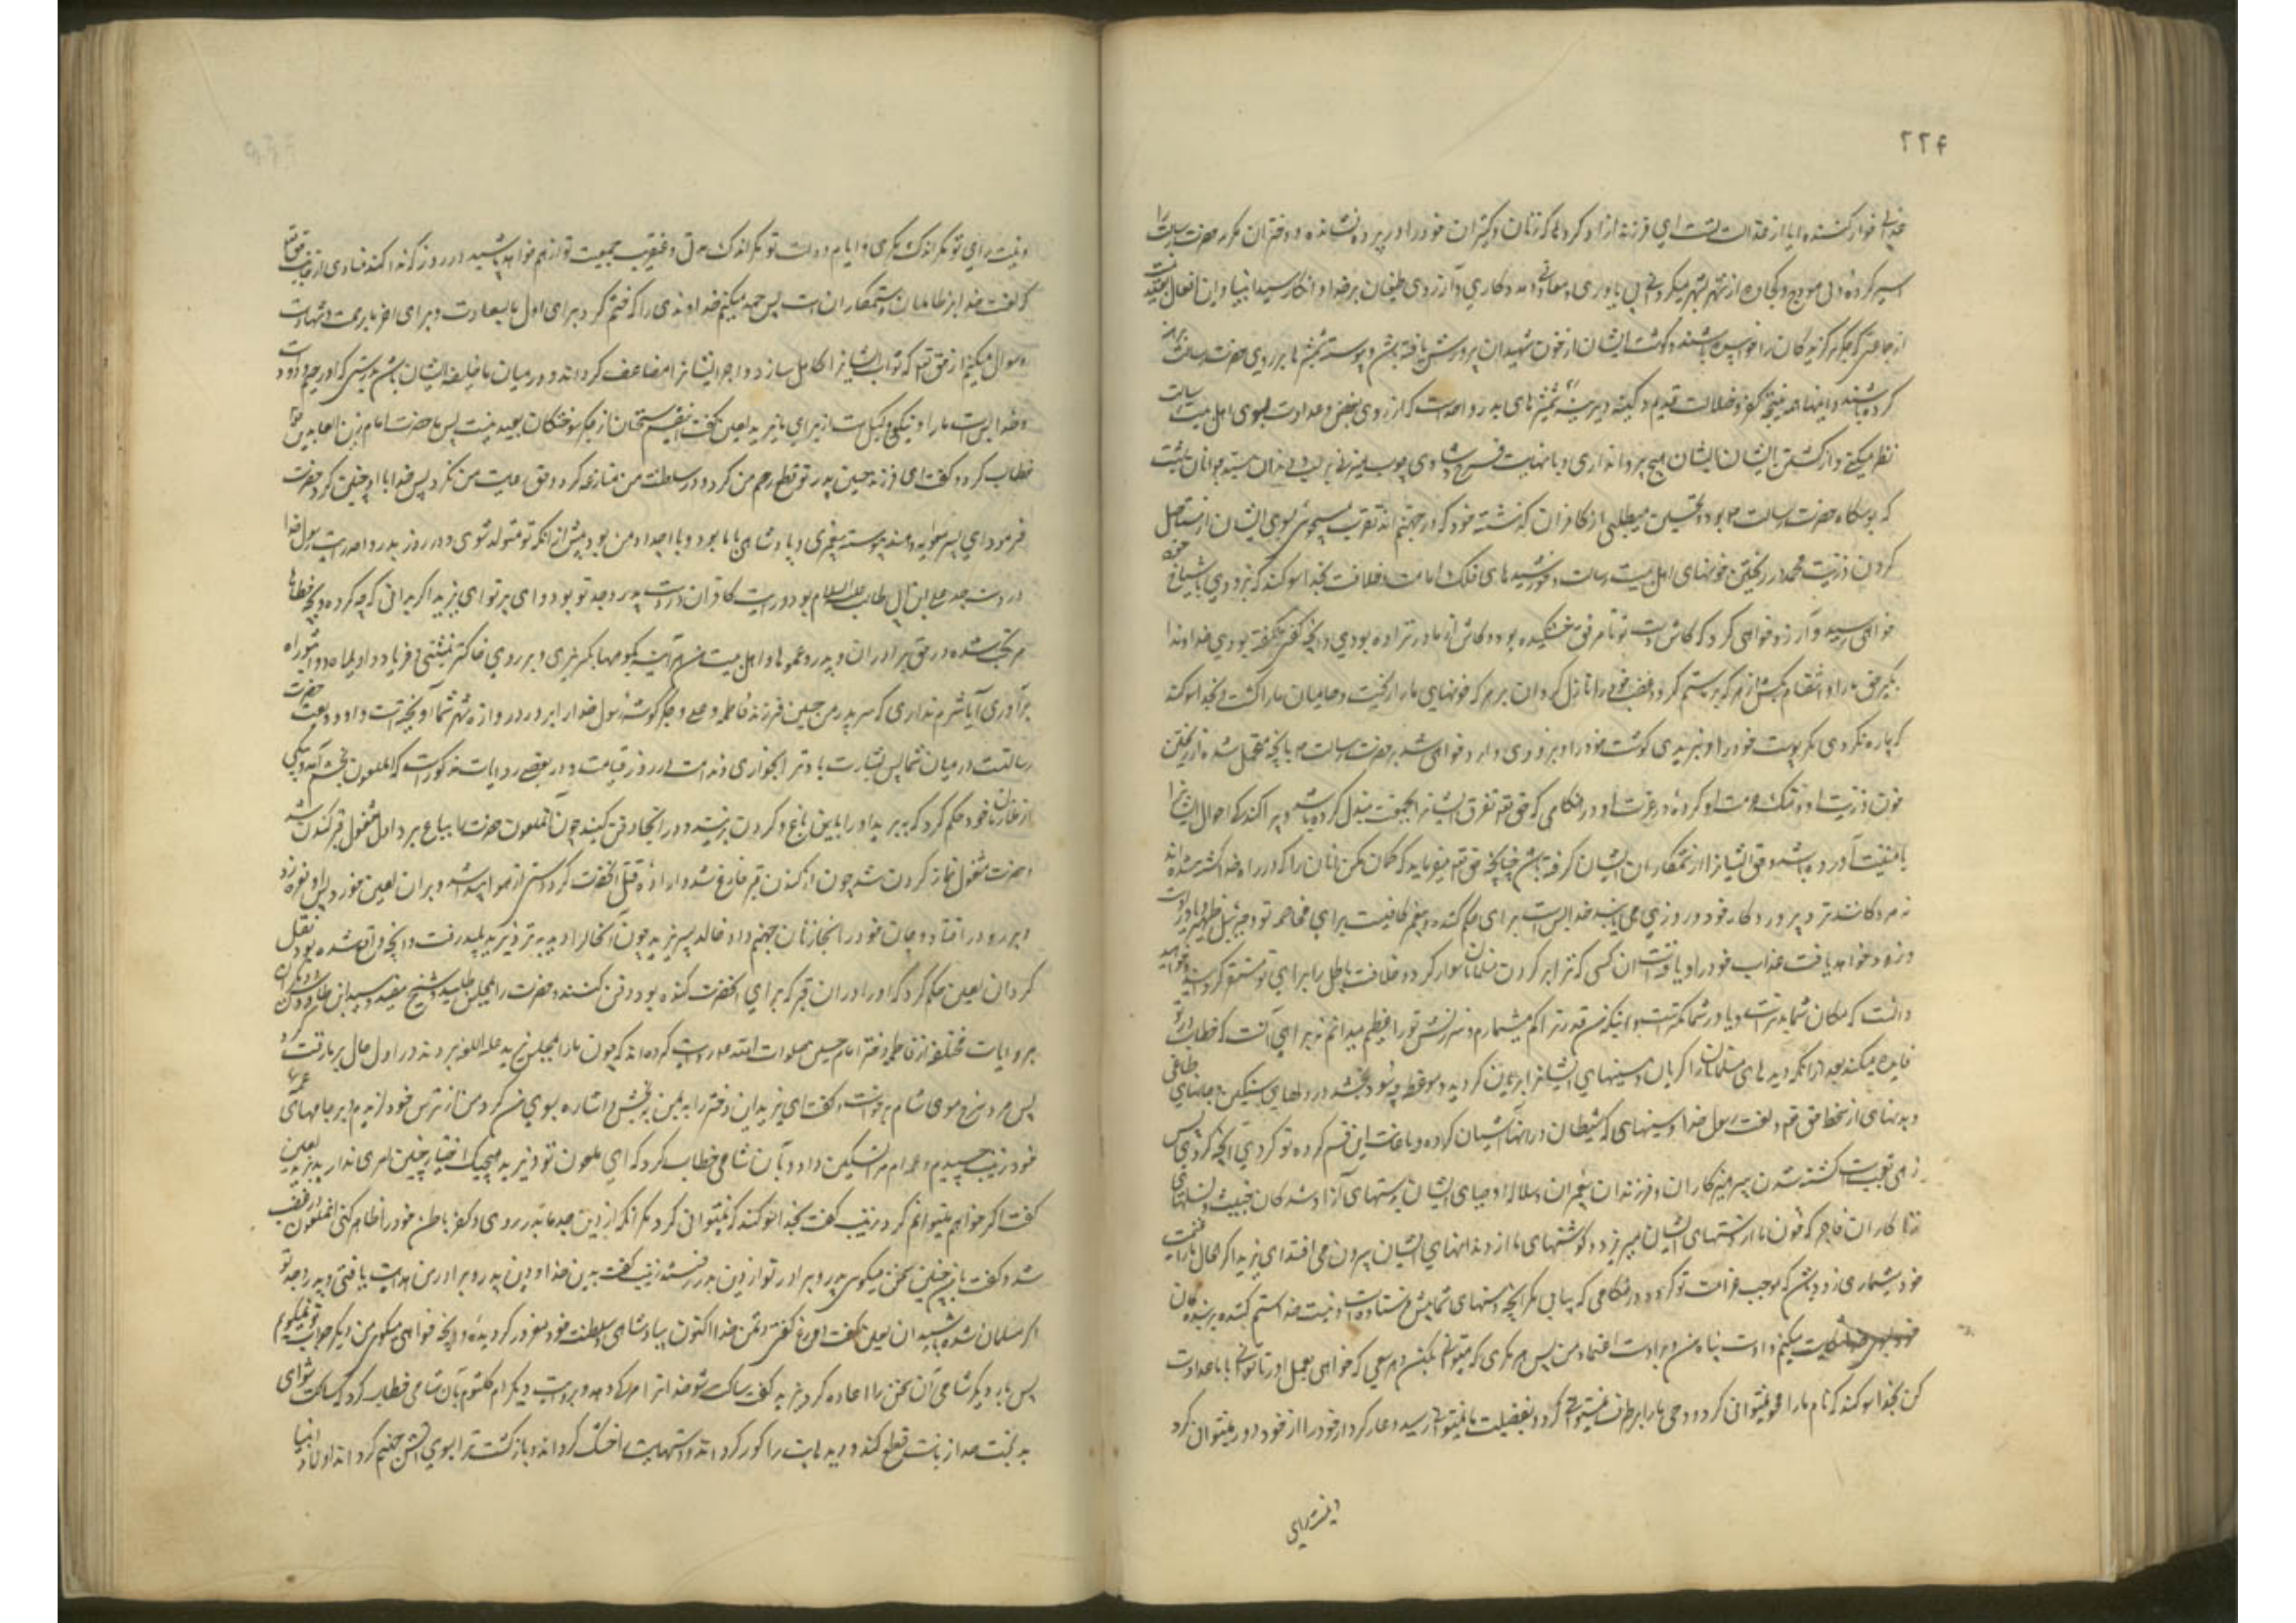 ۲۲۴
خوار کننده ایا از عدالت تست ای فرزند ازاد کرده‌ها که زنان و کنیزان خود را در پرده نشانده و دختران مکرمه حضرت رسالت را
اسیر کرده از شهر بشهر میکردانی بی یاوری و معاونی و مددکاری و از روی طغیان بر خدا و انکار سید انبیا و این افعال
از جماعتی که جگر برگزیدگان را خورده باشند و گوشت ایشان از خون شهیدان پرورش یافته باشد و پیوسته شمشیرها بر روی حضرت رسالت
کرده باشند و اینها همه نتیجه کفر و ضلالت قدیم و کینه دیرینه شمشیرهای بدر و احد است که از روی بغض و عداوت بسوی اهل بیت رسالت
نظر میکنی و از کشتن ایشان هیچ پروا نداری و با نهایت فرح و شادی چوب میزنی بر لب و دندان سید جوانان بهشت
که بوسگاه حضرت رسالت بود و تحسین میطلبی از کافران گذشته خود که در جهنم اند تقرب میجوئی بسوی ایشان از مستأصل
کردن ذریت محمد در ریختن خونهای اهل بیت رسالت و خورشیدهای فلک امامت و خلافت بخدا سوکند که بزودی بایشان
خواهی رسید و آرزو خواهی کرد که کاش دست تو تا مرفق خشکیده بود و کاش از مادر نزاده بودی و آنچه گفتی نگفته بودی خداوندا
بگیر حق ما را و انتقام بکش از هر که بر ما ستم کرد و غضب خود را نازل گردان بر هر که خونهای ما را ریخت و حامیان ما را کشت بخدا سوکند
که پاره نکردی مگر پوست خود را و نبریدی مگر گوشت خود را و بزودی وارد خواهی شد بر حضرت رسالت با آنچه متحمل شده از ریختن
خون ذریت او و هتک حرمت او کرده در عترت او در هنگامی که حق تعالی تفرق ایشان را بجمعیت مبدل کرده باشد و پراکندگی احوال ایشان را
بجمعیت آورده باشد و حق ایشان را از ستمکاران ایشان گرفته باشد چنانچه حق تعالی میفرماید که گمان مکن آنان را که در راه خدا کشته شده‌اند
که مردگانند نزد پروردگار خود و روزی می‌یابند خدا بس است برای حکم کننده و پیغمبر کافیست برای مخاصمه تو و جبرئیل
و زود خواهد یافت عذاب خود را و یافت آن کسی که ترا بر گردن مسلمانان سوار کرد و خلافت باطل را برای تو مستقر گردانید
دانست که مکان شما بدتر است و یاور شما کمتر است و اینکه من قدر ترا کم میشمارم و سرزنش تو را عظیم میدانم نه برای آنست که خطاب در تو
فایده میکند بعد از آنکه دیده‌های مسلمانان را گریان و سینهای ایشان را بریان کردی و موعظه چه سود بخشد در دلهای سنگین و جانهای طاغی
و بدنهای از سخط حق تعالی و لعنت رسول خدا و سینهای که شیطان در آنها آشیان کرده و باعانت این قسم گروه تو کردی آنچه کردی پس
زهی تعجب است کشته شدن پرهیزکاران و فرزندان پیغمبران و سلاله اوصیای ایشان بدستهای آزادشدگان خبیث و نسلهای
زناکاران فاجر که خون ما از دستهای ایشان میریزد و گوشتهای ما از دهانهای ایشان بیرون می‌افتد ای یزید اگر امحال ما را غنیمت
خود میشماری زود باشد که موجب غرامت تو گردد در هنگامی که نیابی مگر آنچه دستهای شما پیش فرستاده است و نیست خدا ستم کننده بر بندگان
میکنم و اوست پناه من و براوست اعتماد من پس هر مکری که میتوانی بکن و هر سعی که خواهی بعمل آور تا توانی با ما عداوت
کن بخدا سوکند که نام ما را محو نمیتوانی کرد و وحی ما را برطرف نمیتوانی کرد و بفضیلت ما نمیتوانی رسید و عار کردار خود را از خود دور نمیتوانی کرد
و نیست رای
و نیست رای تو مگر اندک مکری و ایام دولت تو مگر اندک مدتی و عنقریب جمعیت تو از هم خواهد پاشید در روزی که ندا کند منادی از جانب حق تعالی
که لعنت خدا بر ظالمان و ستمکاران است پس حمد میکنم خداوندی را که ختم کرد برای اول ما بسعادت و برای اخر ما برحمت و شهادت
و سوال میکنم از حق تعالی که ثواب ایشان را کامل سازد و اجر ایشان را مضاعف گرداند و در میان ما خلیفه ایشان باشد بدرستی که او رحیم و ودود است
و خدا بس است ما را و نیکو وکیل است از برای ما یزید لعین گفت اینقسم سخنان از جگر سوختگان بعید نیست پس با حضرت امام زین العابدین
خطاب کرد و گفت ای فرزند حسین پدر تو قطع رحم من کرد و در سلطنت من منازعه کرد و حق رعایت من نکرد پس خدا با او چنین کرد حضرت
فرمود ای پسر معاویه و هند پیوسته پیغمبری و پادشاهی با ما بود و با اجداد من بود پیش از آنکه تو متولد شوی و در روز بدر و احد رایت رسول خدا
در دست جد من علی بن ابی طالب علیه السلام بود و رایت کافران در دست پدر و جد تو بود وای بر تو ای یزید اگر بدانی که چه کرده و چه خطاها
مرتکب شده در حق برادران و پدر و عموها و اهل بیت من هرآینه بکوهها بگریزی و بر روی خاکستر بنشینی و فریاد واویلاه و واثبوراه
برآوری آیا شرم نداری که سر پدر من حسین فرزند فاطمه و علی و جگرگوشه رسول خدا را بر در دروازه شهر شما آویخته است و او ودیعت حضرت
رسالتست در میان شما پس بشارت باد ترا بخواری و ندامت در روز قیامت و در بعضی روایات مذکور است که آنملعون بخشم آمد و یکی
از ملازمان خود حکم کرد که ببر او را باین باغ و گردن بزن و در آنجا دفن کنید چون آنملعون حضرت را بباغ برد اول مشغول قبر کندن شد
و حضرت مشغول نماز کردن شد چون از کندن قبر فارغ شد و اراده قتل آنحضرت کرد دستی از هوا پیدا شد و بر آن لعین خورد پس او نعره زد
و بر رو در افتاد و جان خود را بخازنان جهنم داد خالد پسر یزید چون آنحال را دید بنزد یزید پلید رفت و آنچه واقع شده بود نقل
کرد آن لعین حکم کرد که او را در آن قبر که برای آنحضرت کنده بود دفن کنند و حضرت را بمجلس طلبید و شیخ مفید و سید ابن طاووس و دیگران
بروایات مختلفه از فاطمه دختر امام حسین صلوات الله علیه روایت کرده‌اند که چون ما را بمجلس یزید علیه اللعنه بردند در اول حال بر ما رقت کرد
پس مرد سرخ موی شام برخاست و گفت ای یزید این دختر را بمن ببخش و اشاره بسوی من کرد من از ترس خود لرزیدم و بر جامهای عمه
خود زینب چسبیدم و عمه‌ام مرا تسکین داد و بآن شامی خطاب کرد که ای ملعون تو و یزید هیچیک اختیار چنین امری ندارید یزید لعین
گفت اگر خواهم میتوانم کرد زینب گفت بخدا سوکند که نمیتوانی کرد مگر آنکه از دین جد ما بدر روی و کفر باطن خود را ظاهر کنی آنملعون در غضب
شد و گفت با من چنین سخن میگوئی پدر و برادر تو از دین بدر رفتند زینب گفت بدین خدا و دین پدر و برادر من هدایت یافتی و پدر و جد تو
اگر مسلمان شده باشید آن لعین گفت دروغ گفتی دشمن خدا اکنون بپادشاهی و سلطنت خود مغرور گردیده و آنچه خواهی میگوئی من دیگر جواب تو نمیگویم
پس بار دیگر شامی آن سخن را اعاده کرد یزید گفت ساکت شو خدا ترا مرگ دهد و بروایت دیگر ام کلثوم بآن شامی خطاب کرد که ساکت شو ای
بدبخت خدا زبانت قطع کند و دیده‌هایت را کور گرداند و دستهایت را خشک گرداند و بازگشت ترا بسوی آتش جهنم گرداند اولاد انبیا